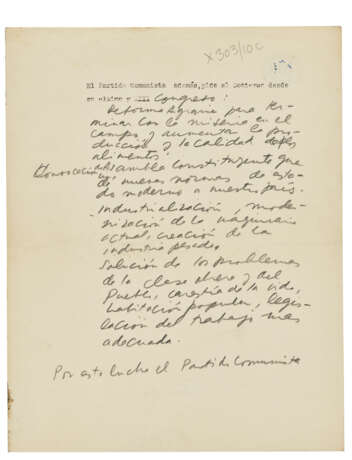 X303/10c
El Partido Comunista además, pide al Gobierno desde
en XIII Congreso:
Reforma Agraria para ter-
minar con la miseria en el
campo y aumentar la pro-
ducción y la calidad de los
alimentos.
Convocación de Asamblea Constituyente que
de nuevas normas de esta-
do moderno a nuestro país.
Industrialización, mode-
rnización de la maquinaria
actual, creación de la
industria pesada
Solución de los problemas
de la clase obrera y del
Pueblo, carestía de la vida,
habitación popular, legis-
lación del trabajo mas
adecuada.
Por esto lucha el Partido Comunista